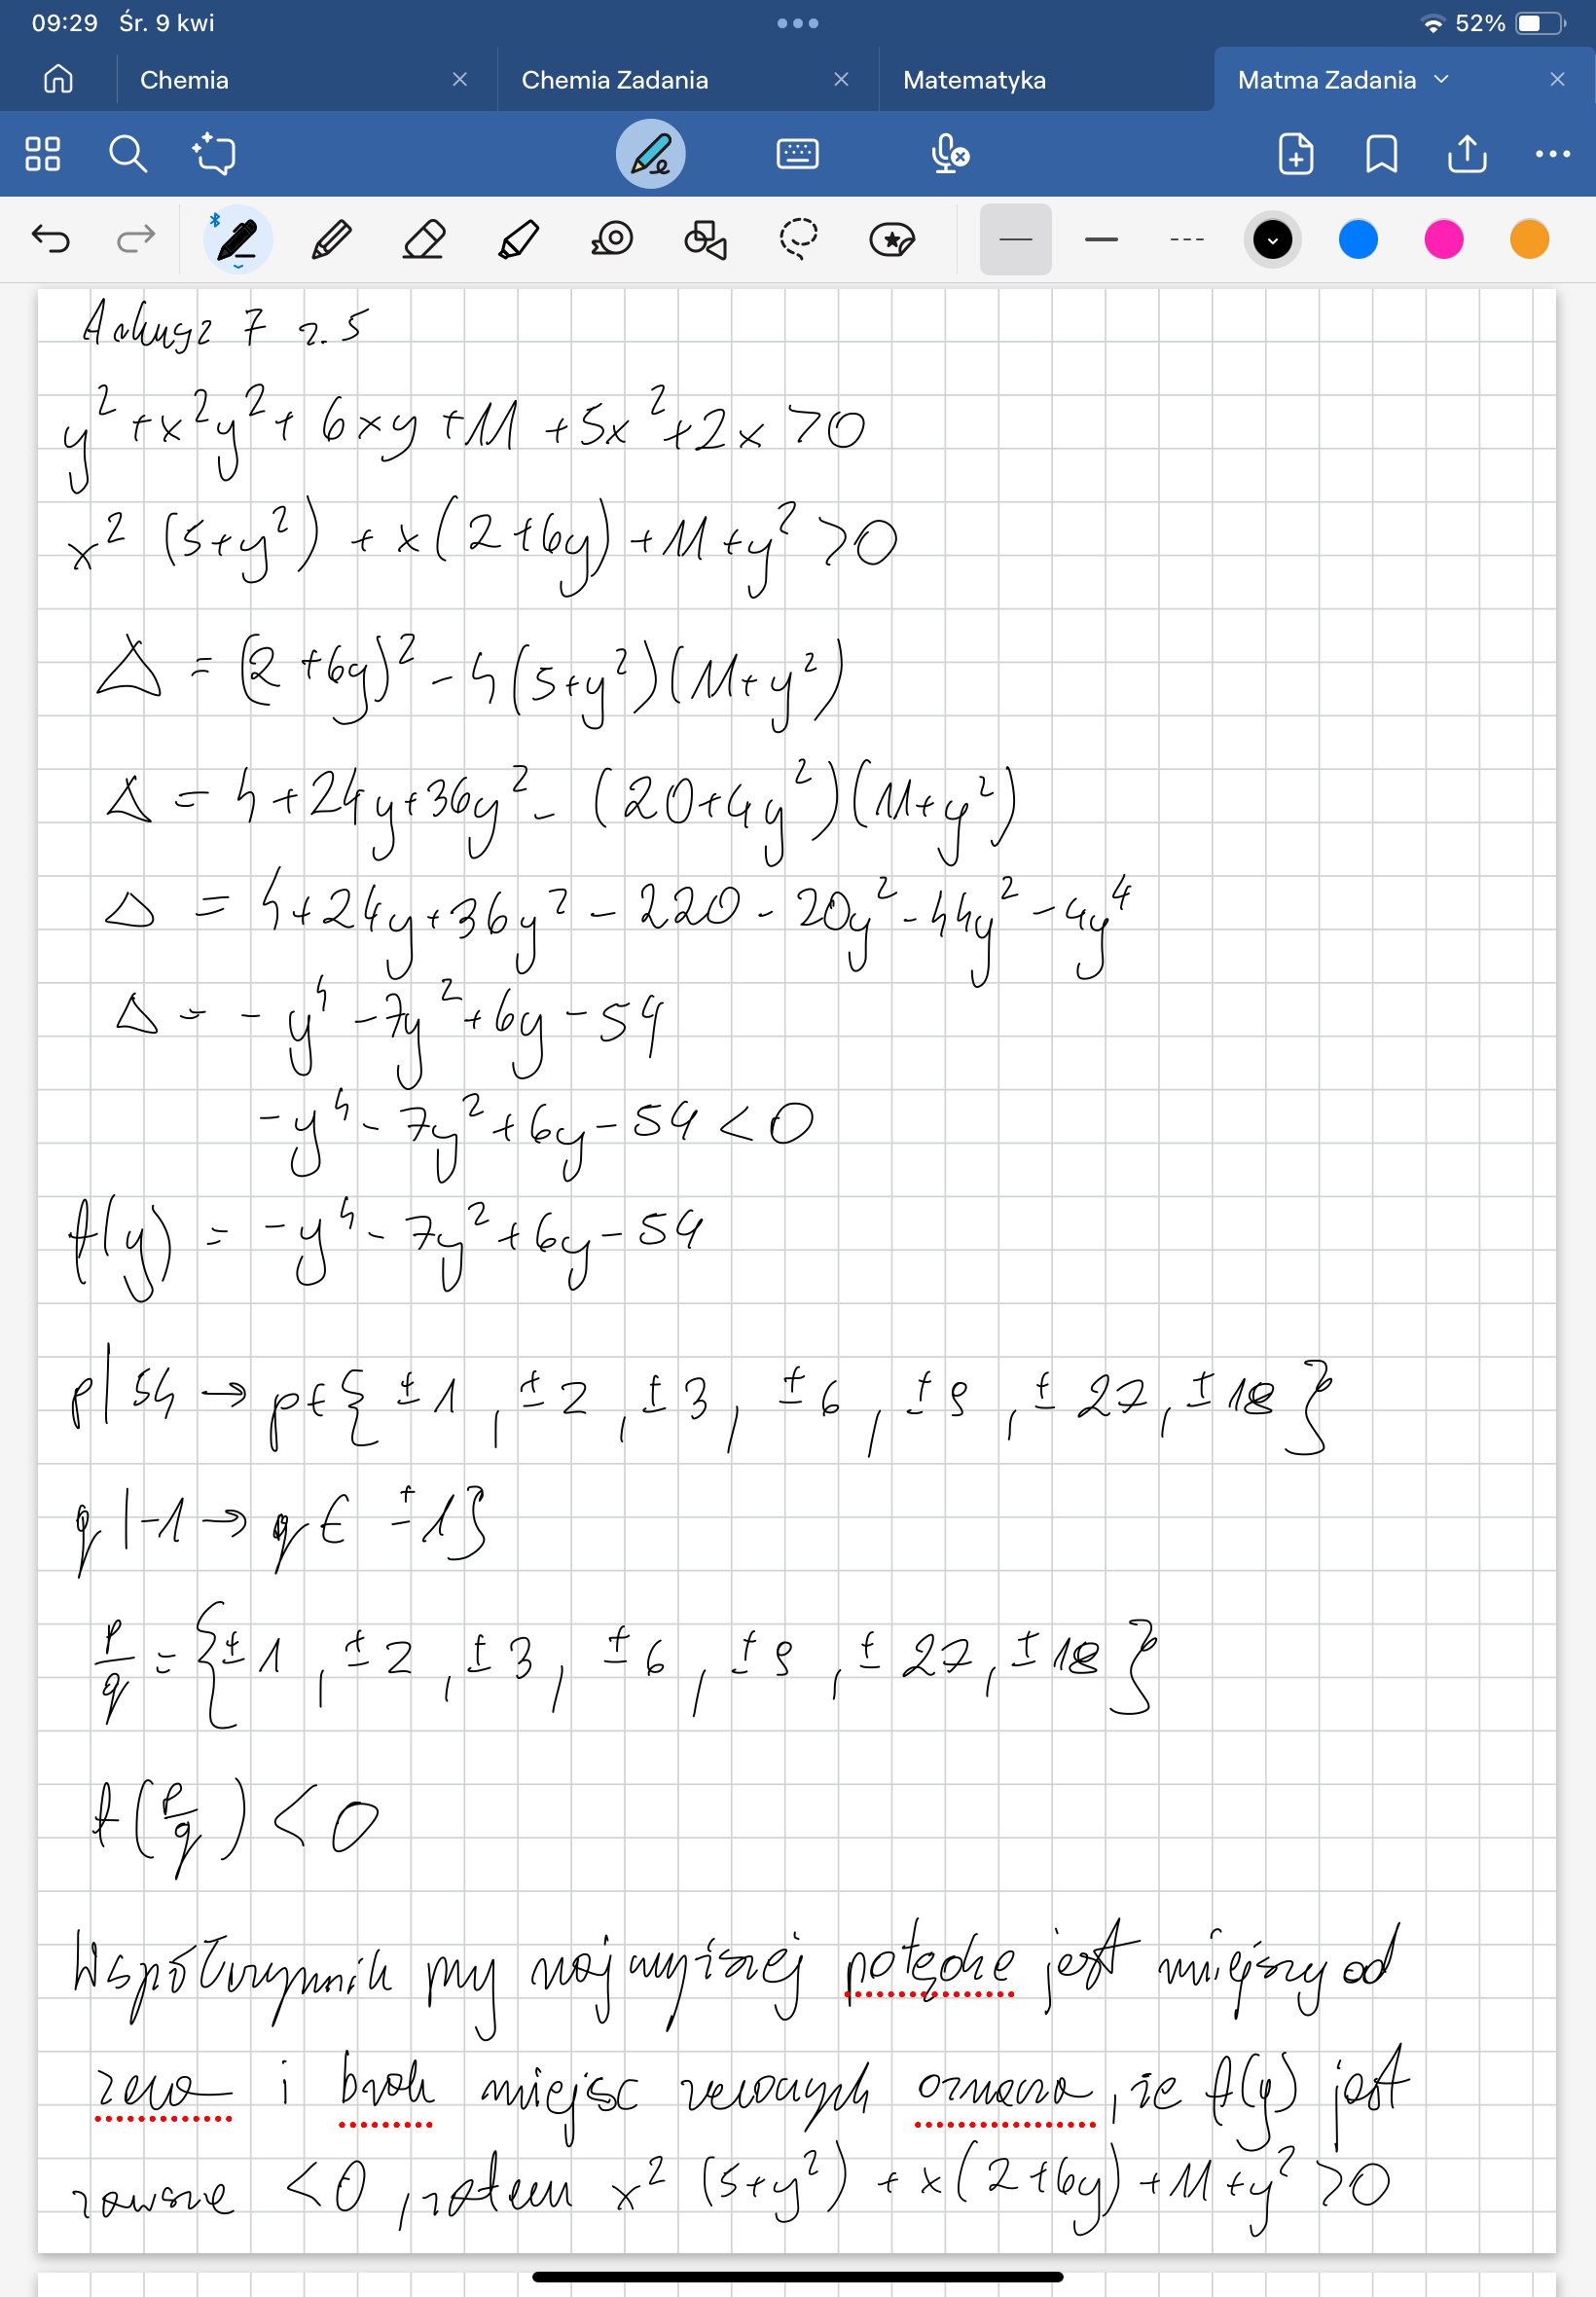 09:29 Śr. 9 kwi
52%
Chemia
Chemia Zadania
Matematyka
Matma Zadania
Arkusz 7 z. 5
y² + x²y² + 6xy + 11 + 5x² + 2x > 0
x² (5+y²) + x(2+6y) + 11 + y² > 0
Δ = (2+6y)² - 4(5+y²)(11+y²)
Δ = 4 + 24y + 36y² - (20+4y²)(11+y²)
Δ = 4 + 24y + 36y² - 220 - 20y² - 44y² - 4y⁴
Δ = - y⁴ - 7y² + 6y - 54
- y⁴ - 7y² + 6y - 54 < 0
f(y) = - y⁴ - 7y² + 6y - 54
p | 54 → p ∈ { ±1, ±2, ±3, ±6, ±9, ±27, ±18 }
q | -1 → q ∈ ±1}
p/q = { ±1, ±2, ±3, ±6, ±9, ±27, ±18 }
f(p/q) < 0
Współczynnik przy najwyższej potędze jest mniejszy od
zera i brak miejsc zerowych oznacza, że f(y) jest
zawsze < 0, zatem x² (5+y²) + x(2+6y) + 11 + y² > 0